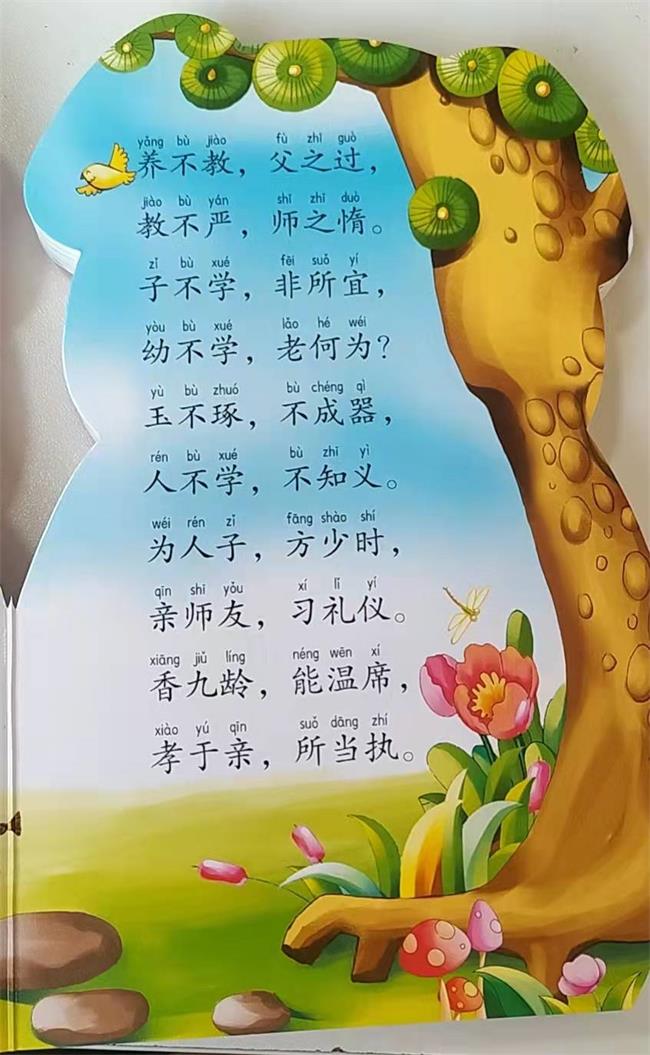 yǎng bù jiào fù zhī guò
养不教，父之过，
jiào bù yán shī zhī duò
教不严，师之惰。
zǐ bù xué fēi suǒ yí
子不学，非所宜，
yòu bù xué lǎo hé wéi
幼不学，老何为？
yù bù zhuó bù chéng qì
玉不琢，不成器，
rén bù xué bù zhī yì
人不学，不知义。
wéi rén zǐ fāng shào shí
为人子，方少时，
qīn shī yǒu xí lǐ yí
亲师友，习礼仪。
xiāng jiǔ líng néng wēn xí
香九龄，能温席，
xiào yú qīn suǒ dāng zhí
孝于亲，所当执。